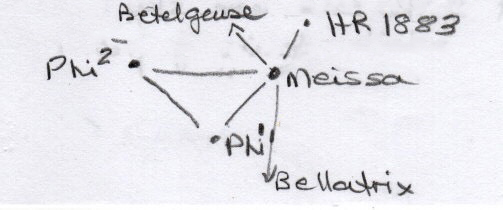 Betelgeuse
HR 1883
Phi 2
Meissa
Phi 1
Bellatrix